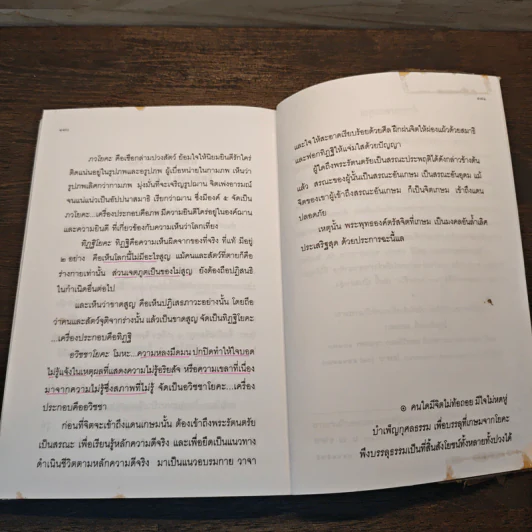 ภวโยคะ คือเชือกล่ามปวงสัตว์ ย้อมใจให้นิยมยินดีรักใคร่
ติดแน่นอยู่ในรูปภพและอรูปภพ ผู้เบื่อหน่ายในกามภพ เห็นว่า
รูปภพเลิศกว่ากามภพ มุ่งมั่นที่จะเจริญรูปฌาน จิตเพ่งอารมณ์
จนแน่แน่วเป็นอัปปนาสมาธิ เรียกว่าฌาน ซึ่งมีองค์ ๕ จัดเป็น
ภวโยคะ...เครื่องประกอบคือภพ มีความยินดีใคร่อยู่ในองค์ฌาน
และความยินดี ที่เกี่ยวข้องกับความเห็นว่าโลกเที่ยง
ทิฏฐิโยคะ ทิฏฐิคือความเห็นผิดจากของที่จริง ที่แท้ มีอยู่
๒ อย่าง คือเห็นโลกนี้ไม่มีอะไรสูญ แม้คนและสัตว์ที่ตายก็คือ
ร่างกายเท่านั้น ส่วนเจตภูตเป็นของไม่สูญ ยังต้องถือปฏิสนธิ
ในกำเนิดอื่นต่อไป
และเห็นว่าขาดสูญ คือเห็นปฏิเสธภาวะอย่างนั้น โดยถือ
ว่าคนและสัตว์จุติจากร่างนั้น แล้วเป็นขาดสูญ จัดเป็นทิฏฐิโยคะ
...เครื่องประกอบคือทิฏฐิ
อวิชชาโยคะ โมหะ...ความหลงมืดมน ปกปิดทำให้ใจบอด
ไม่รู้แจ้งในเหตุผลที่แสดงความไม่รู้อริยสัจ หรือความเขลาที่เนื่อง
มาจากความไม่รู้ซึ่งสภาพที่ไม่รู้ จัดเป็นอวิชชาโยคะ...เครื่อง
ประกอบคืออวิชชา
ก่อนที่จิตจะเข้าถึงแดนเกษมนั้น ต้องเข้าถึงพระรัตนตรัย
เป็นสรณะ เพื่อเรียนรู้หลักความดีจริง และเพื่อยึดเป็นแนวทาง
ดำเนินชีวิตตามหลักความดีจริง มาเป็นแนวอบรมกาย วาจา
และใจ ให้สะอาดเรียบร้อยด้วยศีล ฝึกฝนจิตให้ผ่องแผ้วด้วยสมาธิ
และฟอกทิฏฐิให้แจ่มใสด้วยปัญญา
ผู้ใดถึงพระรัตนตรัยเป็นสรณะประพฤติได้ดังกล่าวข้างต้น
แล้ว สรณะของผู้นั้นเป็นสรณะอันเกษม เป็นสรณะอันอุดม แม้
จิตของเขาผู้เข้าถึงสรณะอันเกษม ก็เป็นจิตเกษม เข้าถึงแดน
ปลอดภัย
เหตุนั้น พระพุทธองค์ตรัสจิตที่เกษม เป็นมงคลอันล้ำเลิศ
ประเสริฐสุด ด้วยประการฉะนี้แล
๏ คนใดมีจิตไม่ท้อถอย มีใจไม่หดหู่
บำเพ็ญกุศลธรรม เพื่อบรรลุที่เกษมจากโยคะ
พึงบรรลุธรรมเป็นที่สิ้นสังโยชน์ทั้งหลายทั้งปวงได้